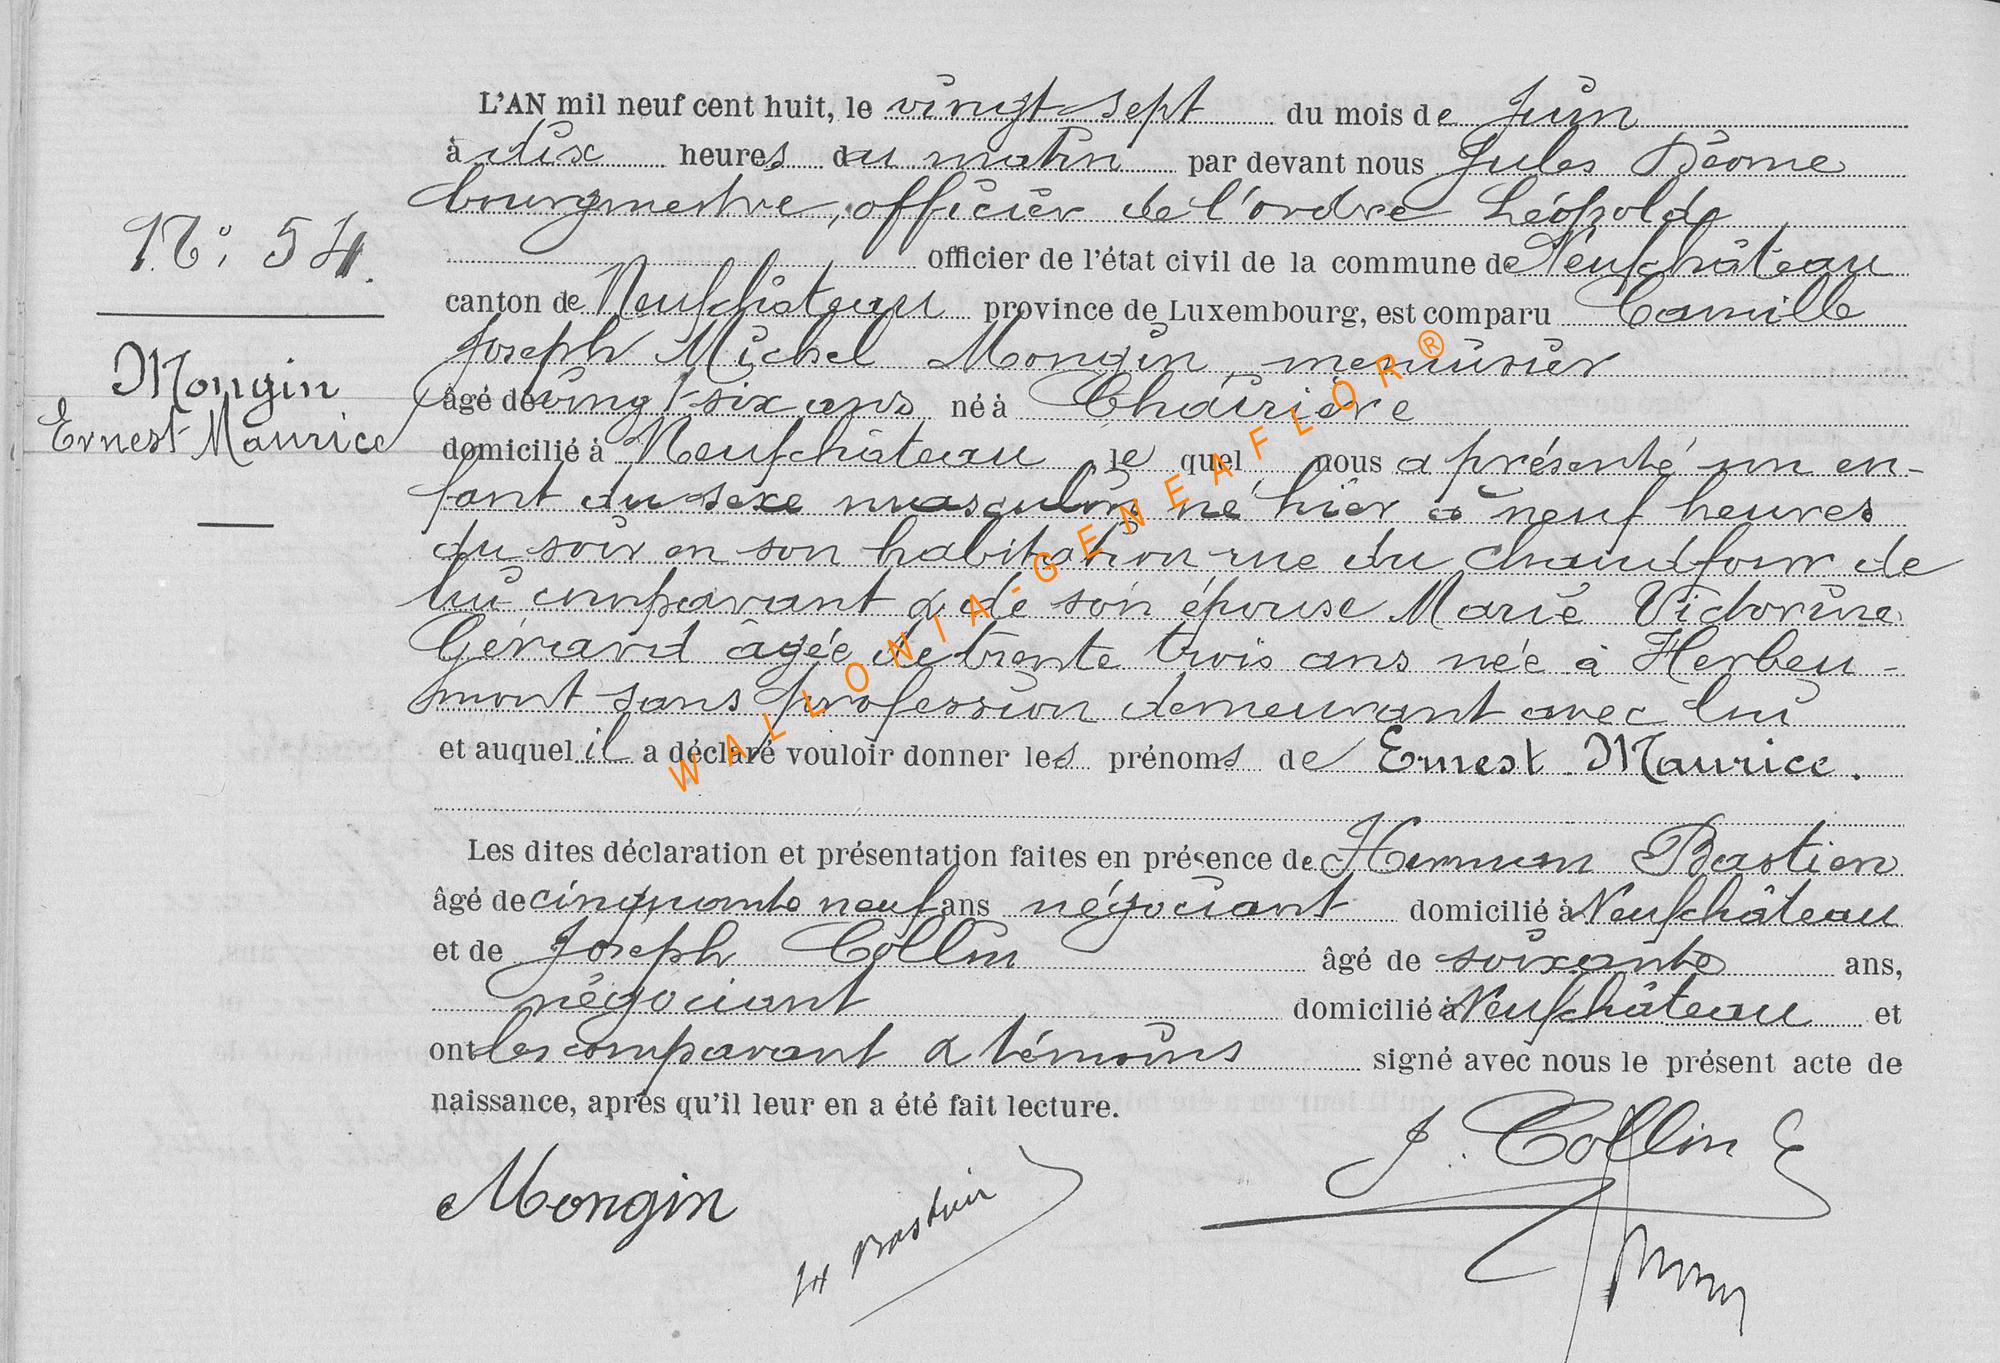 N°. 54.
Mongin
Ernest Maurice
L'AN mil neuf cent huit, le vingt-sept du mois de Juin
à dix heures du matin par devant nous Jules Déome
bourgmestre, officier de l'ordre Léopold
officier de l'état civil de la commune de Neufchâteau
canton de Neufchâteau province de Luxembourg, est comparu Camille
Joseph Michel Mongin, menuisier
âgé de vingt-six ans né à Chairière
domicilié à Neufchâteau le quel nous a présenté un en-
fant du sexe masculin né hier à neuf heures
du soir en son habitation rue du chaudfour de
lui comparant & de son épouse Marie Victorine
Gérard âgée de trente trois ans née à Herbeu-
mont sans profession demeurant avec lui
et auquel il a déclaré vouloir donner les prénoms de Ernest Maurice.
Les dites déclaration et présentation faites en présence de Herman Bastien
âgé de cinquante neuf ans négociant domicilié à Neufchâteau
et de Joseph Collin âgé de soixante ans,
négociant domicilié à Neufchâteau et
ont les comparant & témoins signé avec nous le présent acte de
naissance, après qu'il leur en a été fait lecture.
J. Collin
Mongin
H Bastien
WALLONIA-GENEAFLOR®